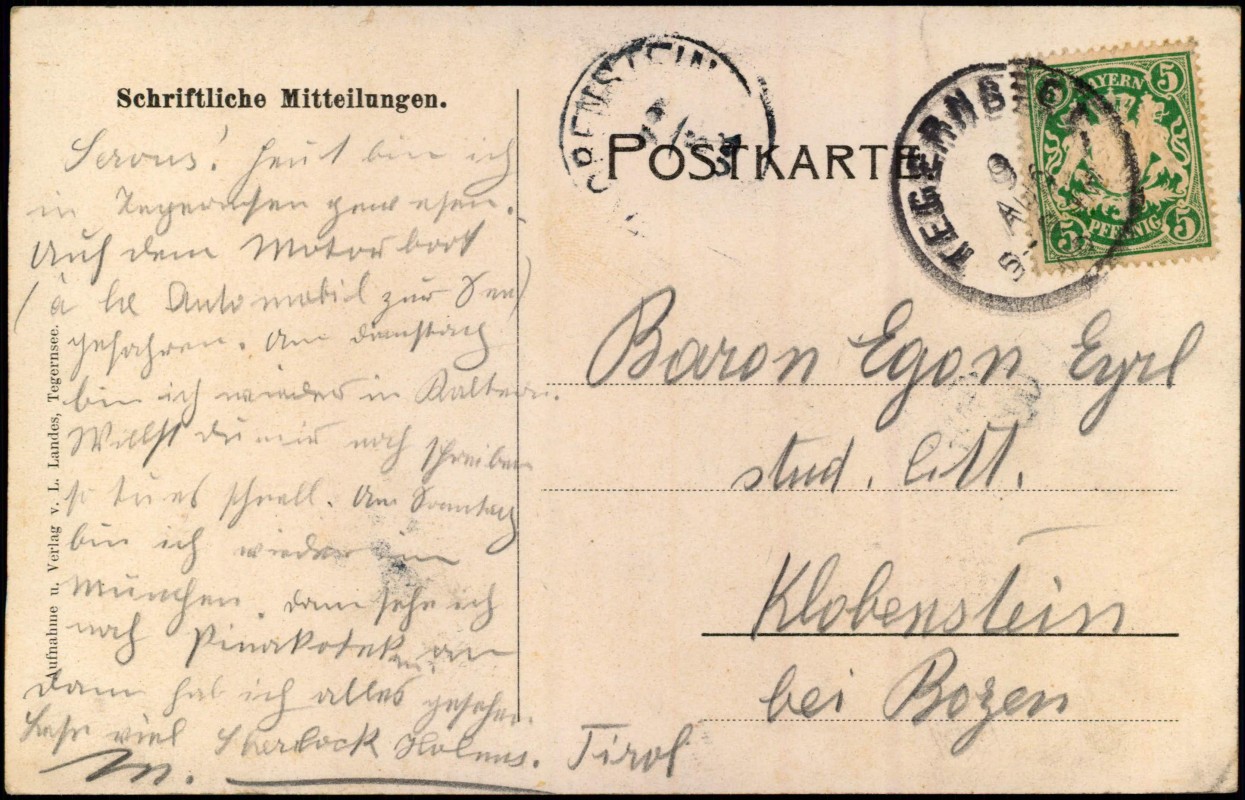 Schriftliche Mitteilungen.
Servus! Heut bin ich
in Tegernsee gewesen.
Auf dem Motorboot
(à la Automobil zur See)
gefahren. Am Samstag
bin ich wieder in Kaltern.
Willst du mir noch schreiben
so tu es schnell. Am Sonntag
bin ich wieder in
München. Dann sehe ich
noch Pinakoteken an
dann hab ich alles gesehen.
Lese viel Sherlock Holms.
M.
Aufnahme u. Verlag v. L. Landes, Tegernsee.
POSTKARTE
BAYERN
5 5
5 5
PFENNIG
Baron Egon Eyrl
stud. litt.
Klobenstein
bei Bozen
Tirol